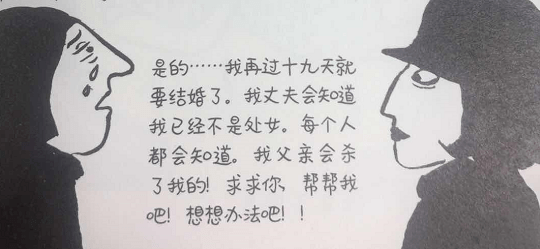 是的……我再过十九天就
要结婚了。我丈夫会知道
我已经不是处女。每个人
都会知道。我父亲会杀
了我的！求求你、帮帮我
吧！想想办法吧！！